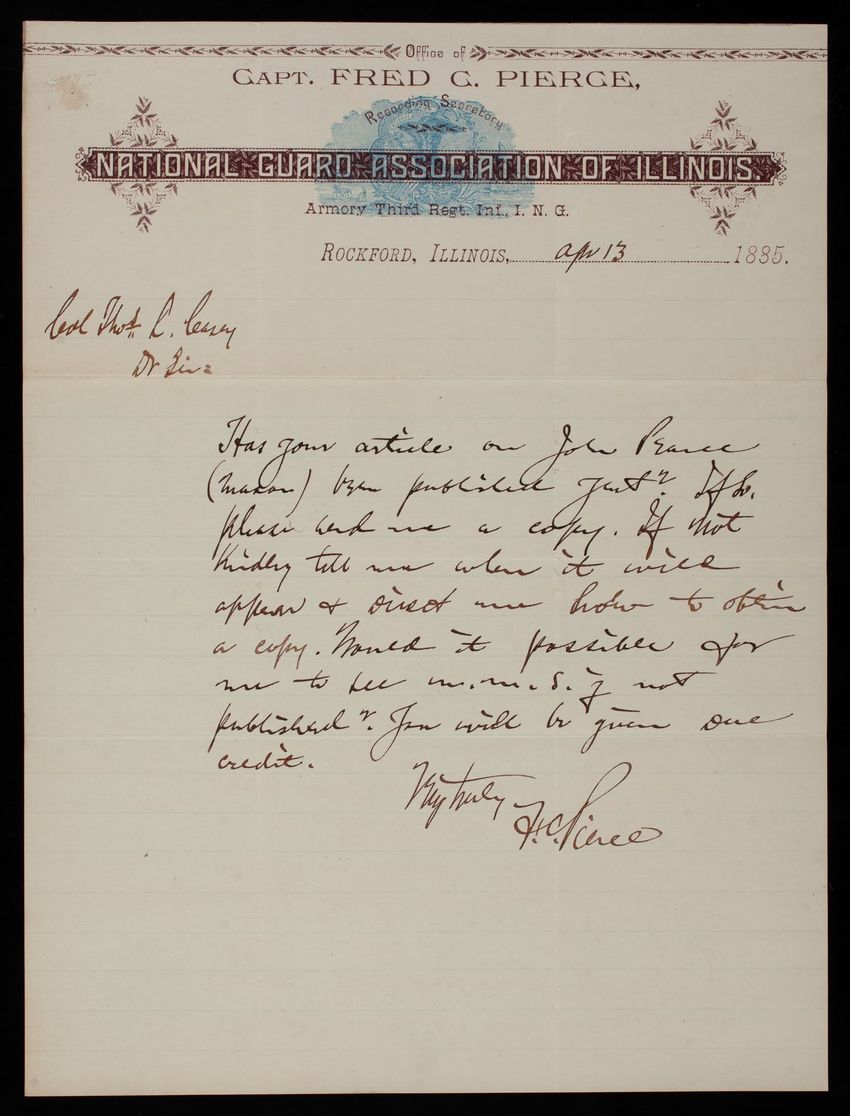 Office of
CAPT. FRED C. PIERCE,
Recording Secretary
NATIONAL GUARD ASSOCIATION OF ILLINOIS.
Armory Third Regt. Inf., I. N. G.
ROCKFORD, ILLINOIS, Apr 13 1885.
Col Thos. L. Casey
Dr Sir:
Has your article on John Pearce
(mason) been published yet? If so,
please send me a copy. If not
kindly tell me when it will
appear & direct me how to obtain
a copy. Would it possible for
me to see m.m.S. if not
published? You will be given due
credit.
Very truly
F.C. Pierce